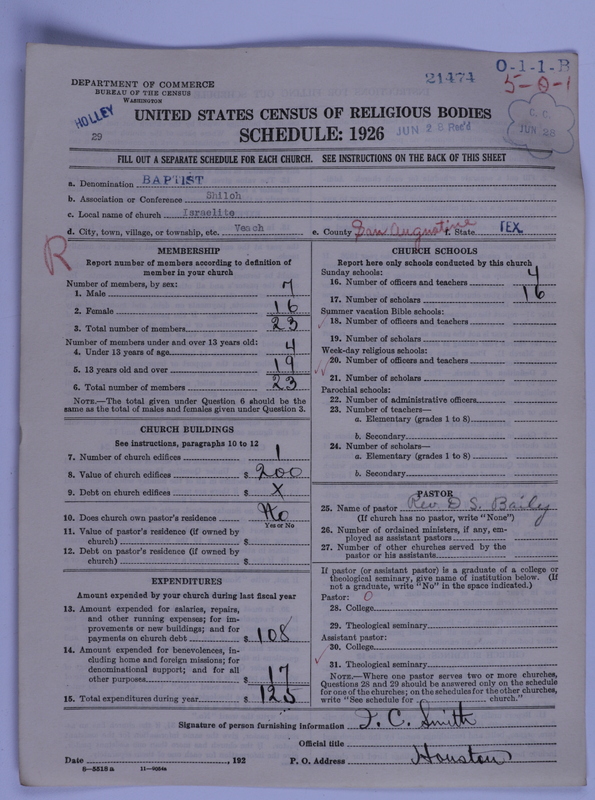 21474 0-1-1-B
5-0-1
DEPARTMENT OF COMMERCE
BUREAU OF THE CENSUS
WASHINGTON
HOLLEY
29
UNITED STATES CENSUS OF RELIGIOUS BODIES
SCHEDULE: 1926
JUN 28 Rec'd
C. C.
JUN 28
FILL OUT A SEPARATE SCHEDULE FOR EACH CHURCH. SEE INSTRUCTIONS ON THE BACK OF THIS SHEET
a. Denomination BAPTIST
b. Association or Conference Shiloh
c. Local name of church Israelite
d. City, town, village, or township, etc. Veach e. County San Augustine f. State TEX
R
MEMBERSHIP
Report number of members according to definition of
member in your church
Number of members, by sex:
1. Male 7
2. Female 16
3. Total number of members 23
Number of members under and over 13 years old:
4. Under 13 years of age 4
5. 13 years old and over 19
6. Total number of members 23
NOTE.—The total given under Question 6 should be the
same as the total of males and females given under Question 3.
CHURCH BUILDINGS
See instructions, paragraphs 10 to 12
7. Number of church edifices 1
8. Value of church edifices $ 200
9. Debt on church edifices $ X
10. Does church own pastor's residence No
Yes or No
11. Value of pastor's residence (if owned by
church) $
12. Debt on pastor's residence (if owned by
church) $
EXPENDITURES
Amount expended by your church during last fiscal year
13. Amount expended for salaries, repairs,
and other running expenses; for im-
provements or new buildings; and for
payments on church debt $ 108
14. Amount expended for benevolences, in-
cluding home and foreign missions; for
denominational support; and for all
other purposes $ 17
15. Total expenditures during year $ 125
CHURCH SCHOOLS
Report here only schools conducted by this church
Sunday schools:
16. Number of officers and teachers 4
17. Number of scholars 16
Summer vacation Bible schools:
18. Number of officers and teachers
19. Number of scholars
Week-day religious schools:
20. Number of officers and teachers
21. Number of scholars
Parochial schools:
22. Number of administrative officers
23. Number of teachers—
a. Elementary (grades 1 to 8)
b. Secondary
24. Number of scholars—
a. Elementary (grades 1 to 8)
b. Secondary
PASTOR
25. Name of pastor Rev D S. Baily
(If church has no pastor, write "None")
26. Number of ordained ministers, if any, em-
ployed as assistant pastors
27. Number of other churches served by the
pastor or his assistants
If pastor (or assistant pastor) is a graduate of a college or
theological seminary, give name of institution below. (If
not a graduate, write "No" in the space indicated.)
Pastor: 0
28. College
29. Theological seminary
Assistant pastor:
30. College
31. Theological seminary
NOTE.—Where one pastor serves two or more churches,
Questions 28 and 29 should be answered only on the schedule
for one of the churches; on the schedules for the other churches,
write "See schedule for church."
Signature of person furnishing information J. C. Smith
Official title
Date , 192 P. O. Address Houston
8-5518a 11-9054a